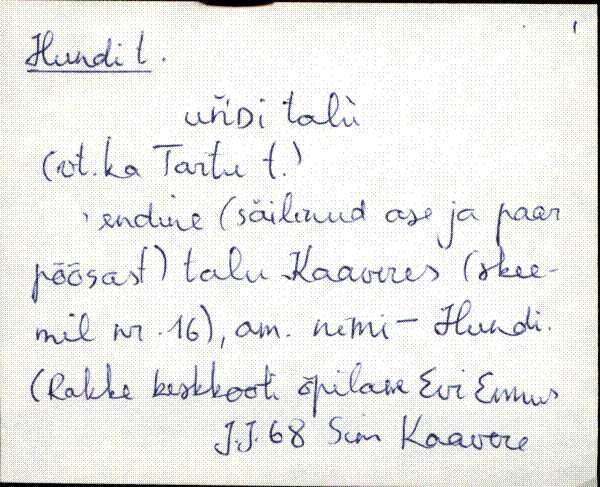 Hundi t.
uńᴅi talù
(vt. ka Tartu t.)
endine (säilinud ase ja paar
põõsast) talu Kaaveres (skee-
mil nr. 16), am. nimi - Hundi.
(Rakke keskkooli õpilane Evi Ennus
J.J. 68 Sim Kaavere